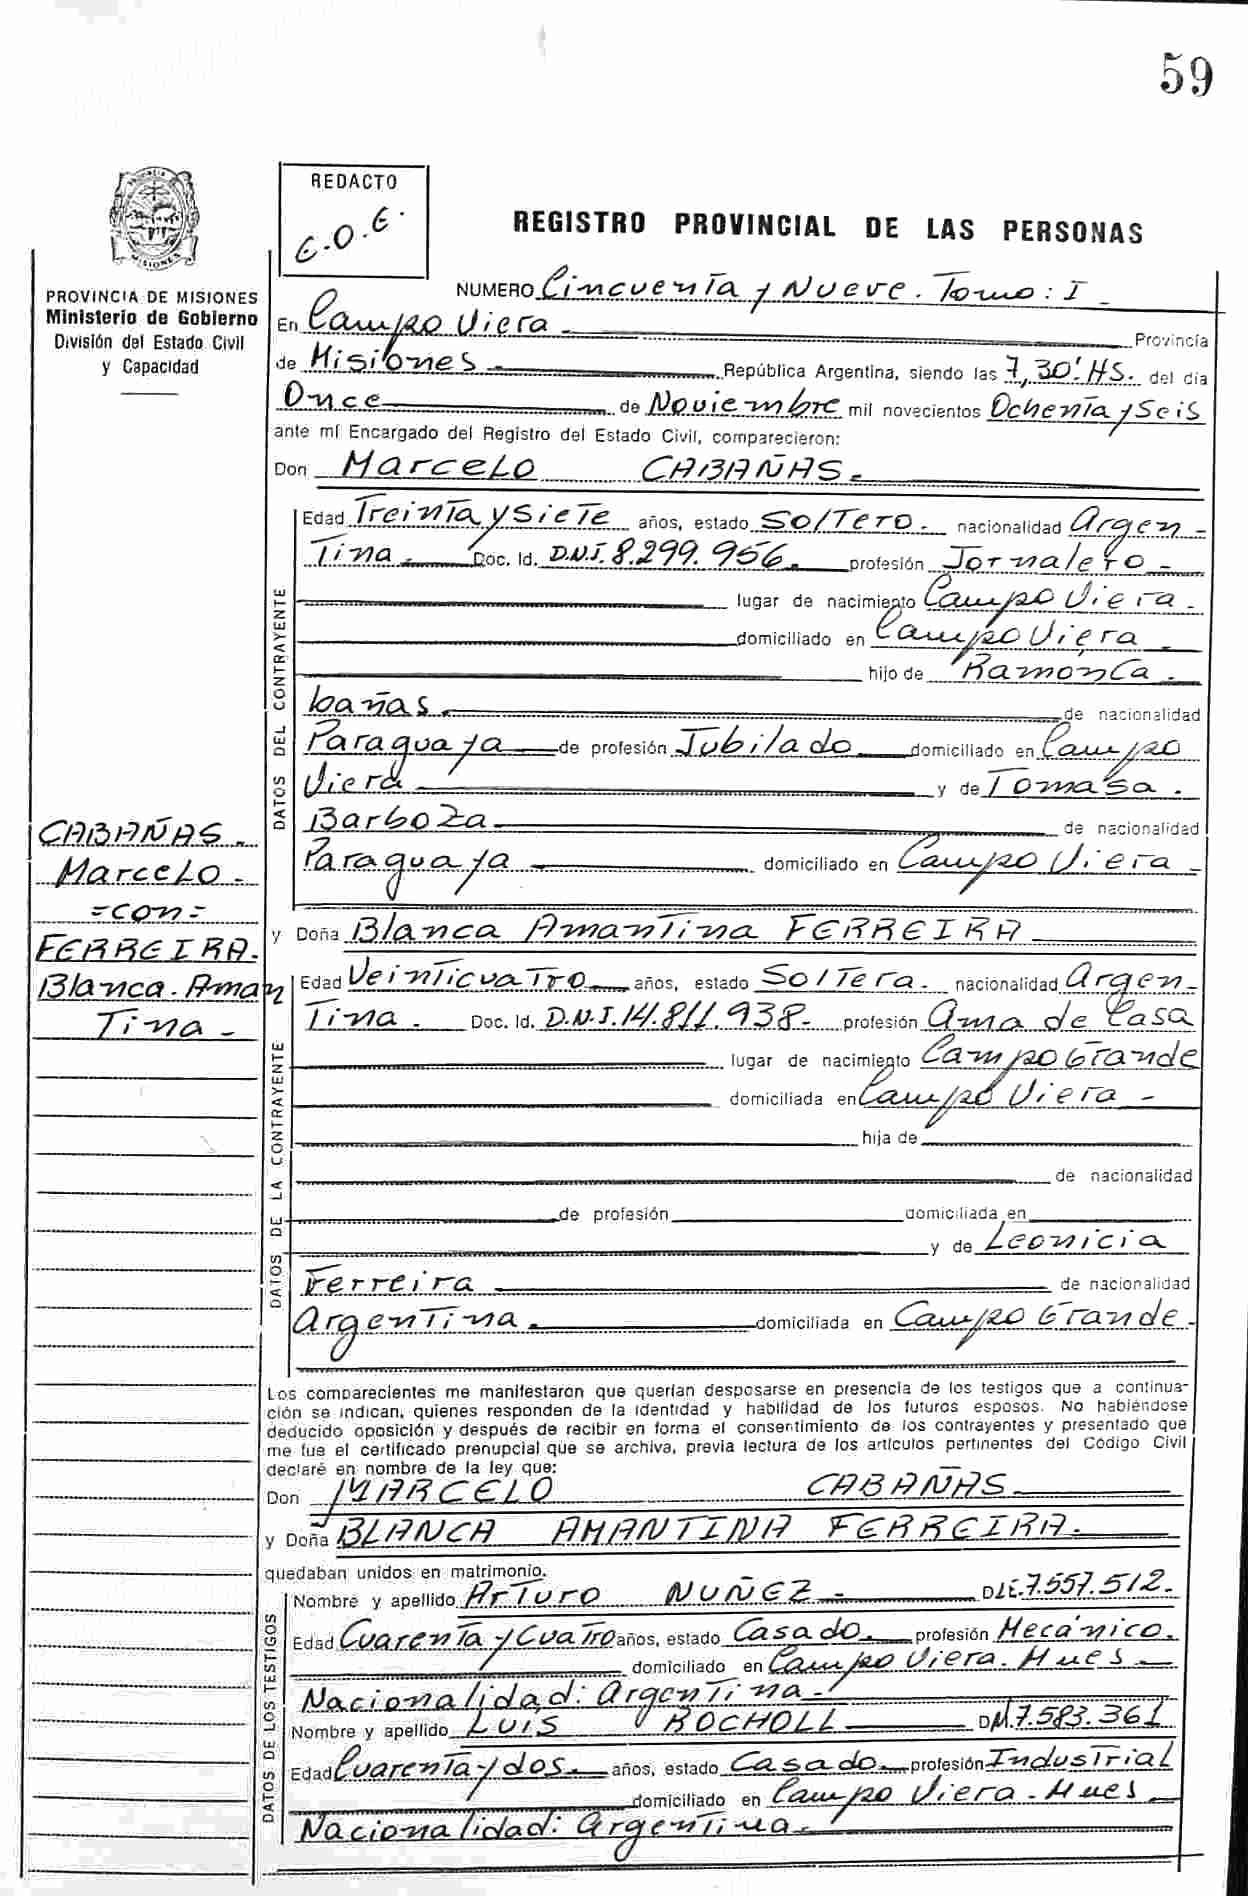 59
REDACTO
E.O.E.
REGISTRO PROVINCIAL DE LAS PERSONAS
PROVINCIA DE MISIONES
Ministerio de Gobierno
División del Estado Civil
y Capacidad
NUMERO Cincuenta y Nueve. Tomo: I -
En Campo Viera - Provincia
de Misiones - República Argentina, siendo las 7,30' HS. del día
Once de Noviembre mil novecientos Ochenta y Seis
ante mí Encargado del Registro del Estado Civil, comparecieron:
Don Marcelo CABAÑAS.
CABAÑAS.
Marcelo -
=con=
FERREIRA.
Blanca. Aman
Tina -
DATOS DEL CONTRAYENTE
Edad Treinta y Siete años, estado Soltero. nacionalidad Argen -
Tina. Doc. Id. D.N.I. 8.299.956. profesión Jornalero -
lugar de nacimiento Campo Viera -
domiciliado en Campo Viera -
hijo de Ramón Ca -
bañas. de nacionalidad
Paraguaya de profesión Jubilado domiciliado en Campo
Viera y de Tomasa.
Barboza de nacionalidad
Paraguaya domiciliado en Campo Viera -
y Doña Blanca Amantina FERREIRA
DATOS DE LA CONTRAYENTE
Edad Veinticuatro años, estado Soltera. nacionalidad Argen -
Tina. Doc. Id. D.N.I. 14.811.938- profesión Ama de Casa
lugar de nacimiento Campo Grande
domiciliada en Campo Viera -
hija de
de nacionalidad
de profesión domiciliada en
y de Leonicia
Ferreira de nacionalidad
Argentina. domiciliada en Campo Grande.
Los comparecientes me manifestaron que querían desposarse en presencia de los testigos que a continua-
ción se indican, quienes responden de la identidad y habilidad de los futuros esposos. No habiéndose
deducido oposición y después de recibir en forma el consentimiento de los contrayentes y presentado que
me fue el certificado prenupcial que se archiva, previa lectura de los artículos pertinentes del Código Civil
declaré en nombre de la ley que:
Don MARCELO CABAÑAS.
y Doña BLANCA AMANTINA FERREIRA.
quedaban unidos en matrimonio.
DATOS DE LOS TESTIGOS
Nombre y apellido Arturo NUÑEZ - D.I.E. 7.557.512.
Edad Cuarenta y Cuatro años, estado Casado. profesión Mecánico.
domiciliado en Campo Viera. Mnes -
Nacionalidad: Argentina.
Nombre y apellido LUIS ROCHOLL DM. 7.583.361
Edad Cuarenta y dos. años, estado Casado. profesión Industrial
domiciliado en Campo Viera - Mnes
Nacionalidad: Argentina.